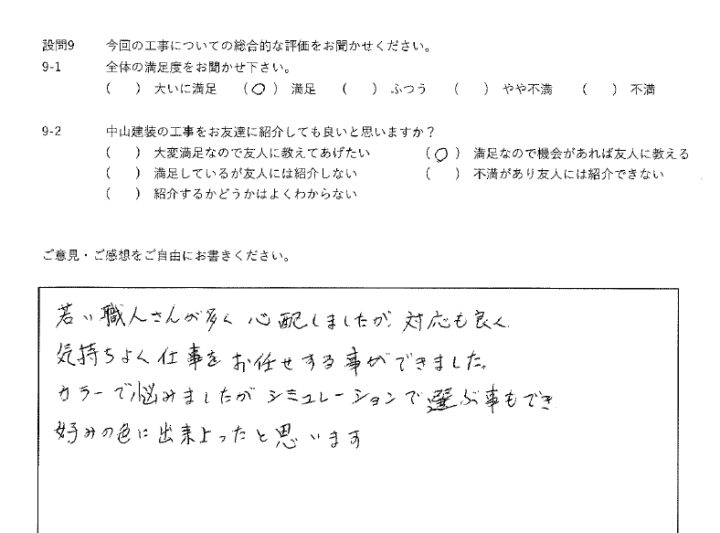 設問9 今回の工事についての総合的な評価をお聞かせください。
9-1 全体の満足度をお聞かせ下さい。
( ) 大いに満足 (○) 満足 ( ) ふつう ( ) やや不満 ( ) 不満
9-2 中山建装の工事をお友達に紹介しても良いと思いますか？
( ) 大変満足なので友人に教えてあげたい (○) 満足なので機会があれば友人に教える
( ) 満足しているが友人には紹介しない ( ) 不満があり友人には紹介できない
( ) 紹介するかどうかはよくわからない
ご意見・ご感想をご自由にお書きください。
若い職人さんが多く心配しましたが対応も良く
気持ちよく仕事をお任せする事ができました。
カラーで悩みましたがシミュレーションで選ぶ事もでき
好みの色に出来上ったと思います